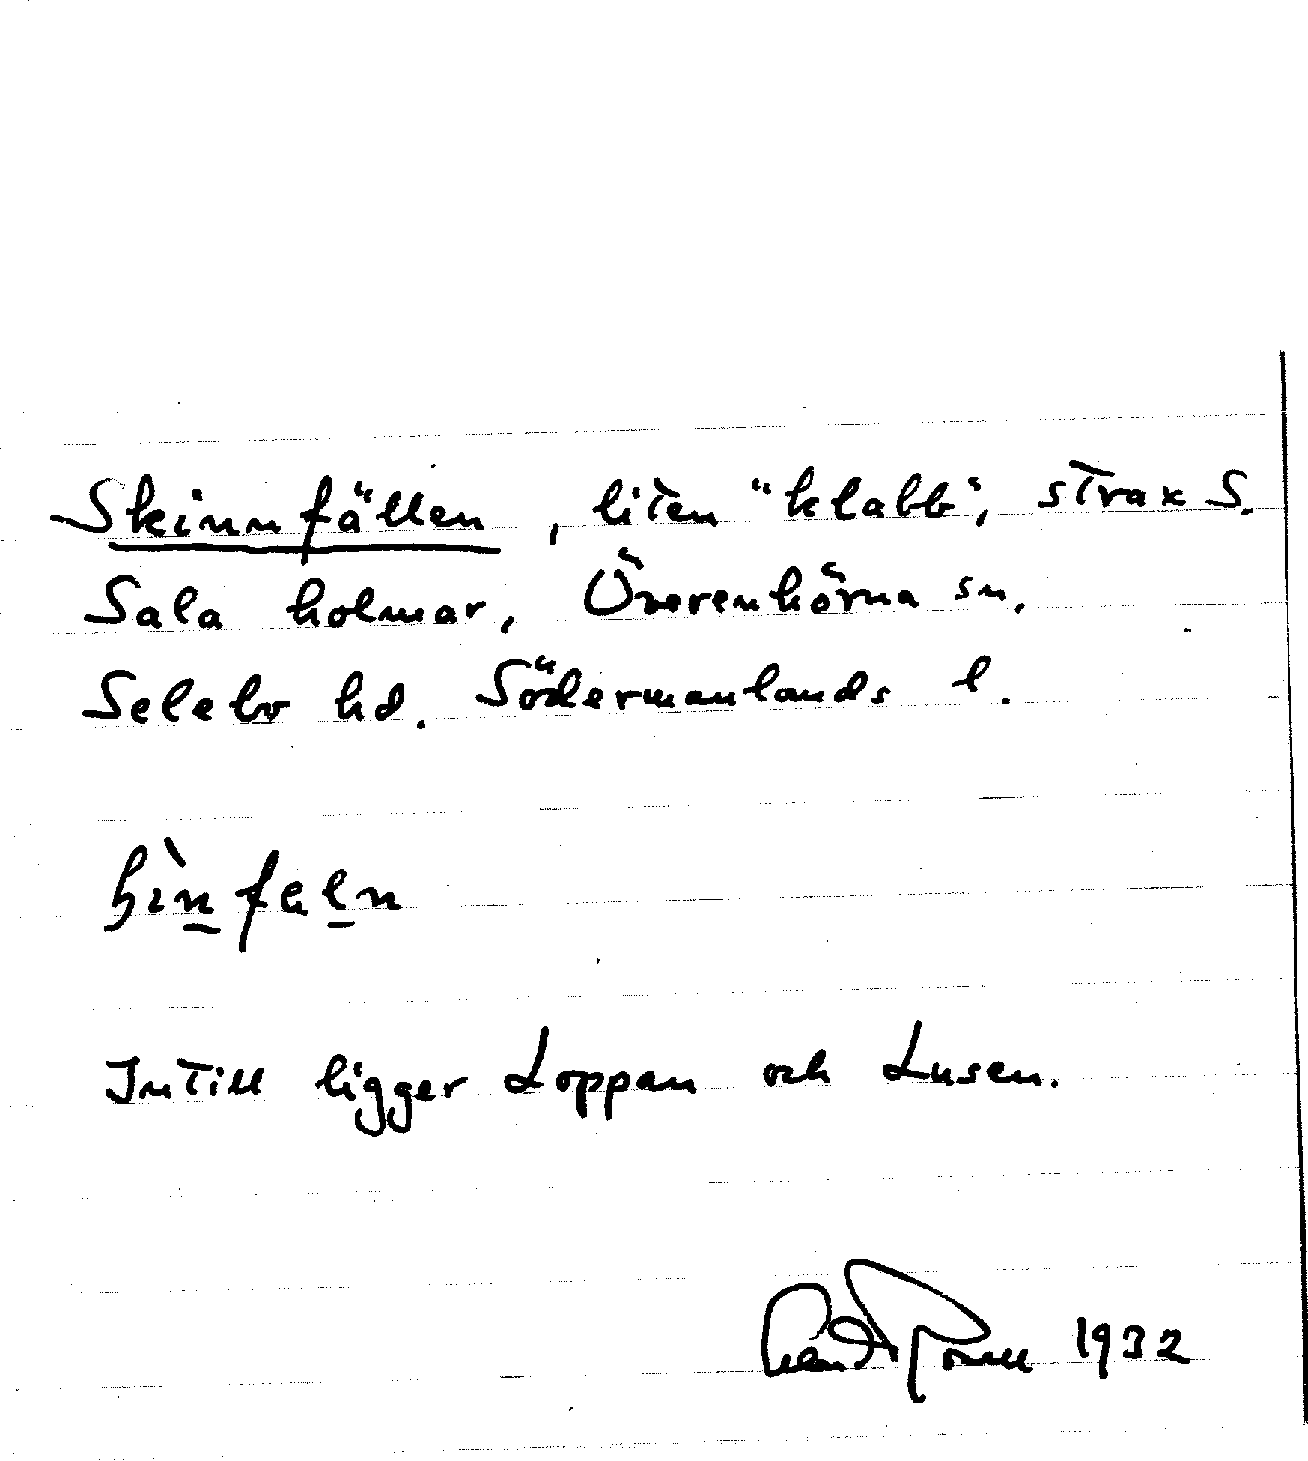 Skinnfällen, liten "klabb", strax S.
Sala holmar, Överenhörna sn,
Selebo hd. Södermanlands l.
Intill ligger Loppan och Lusen.
1932